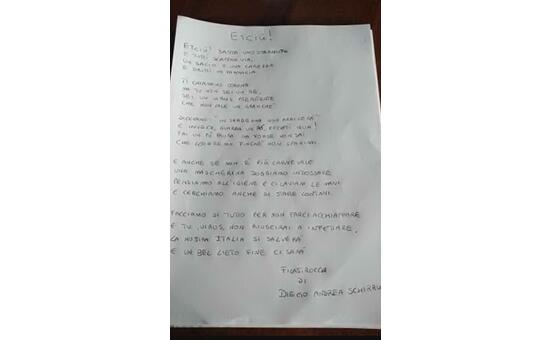 ETCIÚ!
ETCIÚ! BASTA UNO STARNUTO
E TUTTI SCAPPAN VIA,
UN BACIO E UNA CAREZZA
E DRITTI IN FARMACIA.
TI CHIAMANO CORONA
MA TU NON SEI UN RE,
SEI UN VIRUS
CHE NON VALE UN GRANCHÉ
DICEVANO: "IN
E INVECE, GUARDA UN PO', ECCOTI QUA!
FAI UN PO' PAURA MA FORSE NON SAI
CHE FINCHÉ NON SPARIRAI.
E ANCHE SE NON È PIÙ CARNEVALE
UNA MASCHERINA DOBBIAMO INDOSSARE
PENSIAMO ALL'IGIENE E CI LAVIAM LE MANI
E CERCHIAMO ANCHE DI STARE LONTANI.
FACCIAMO DI TUTTO PER NON FARCI ACCHIAPPARE
E TU, VIRUS, NON RIUSCIRAI A INFETTARE.
LA NOSTRA ITALIA SI SALVERÀ
E UN BEL LIETO FINE CI SARÀ
FILASTROCCA
DI
DIEGO ANDREA SCHIRRU